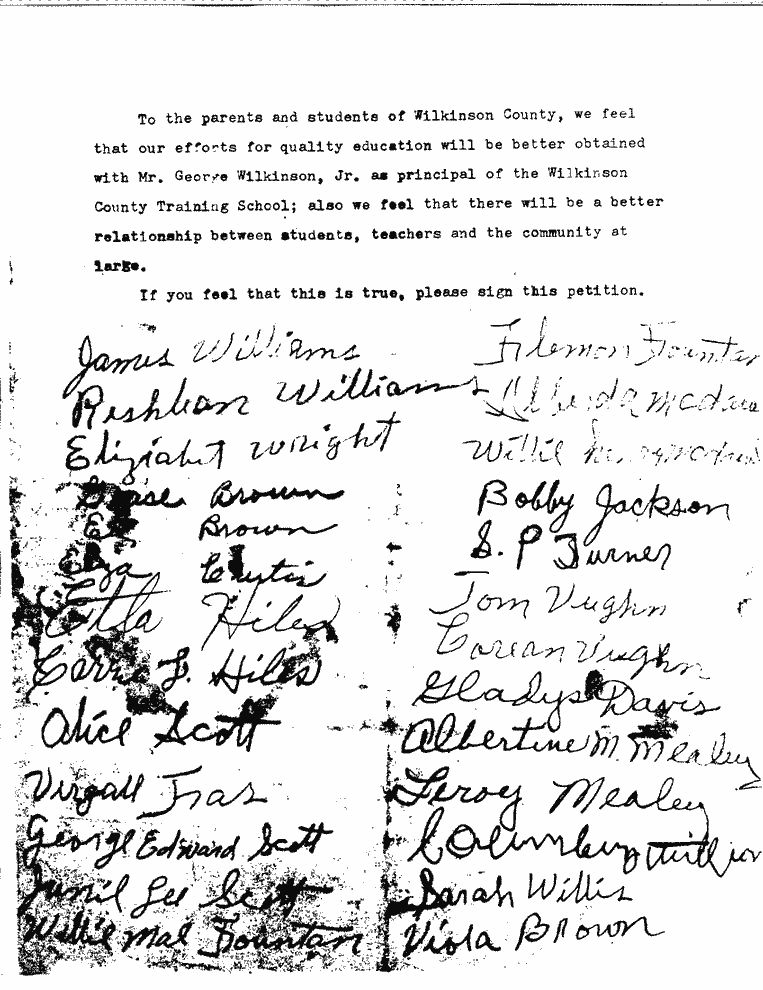 To the parents and students of Wilkinson County, we feel
that our efforts for quality education will be better obtained
with Mr. George Wilkinson, Jr. as principal of the Wilkinson
County Training School; also we feel that there will be a better
relationship between students, teachers and the community at
large.
If you feel that this is true, please sign this petition.
James Williams
Williams
Wright
Brown
Brown
Curtis
Etta Hiles
Carrie L. Hiles
Alice Scott
Virgall
George Edward Scott
Lee Scott
Willie Mal Fountan
Filemon
Willie
Bobby Jackson
S. P Turner
Tom Vughn
Corean Vughn
Gladys Davis
Albertine M. Mealey
Leroy Mealey
Sarah Willis
Viola Brown